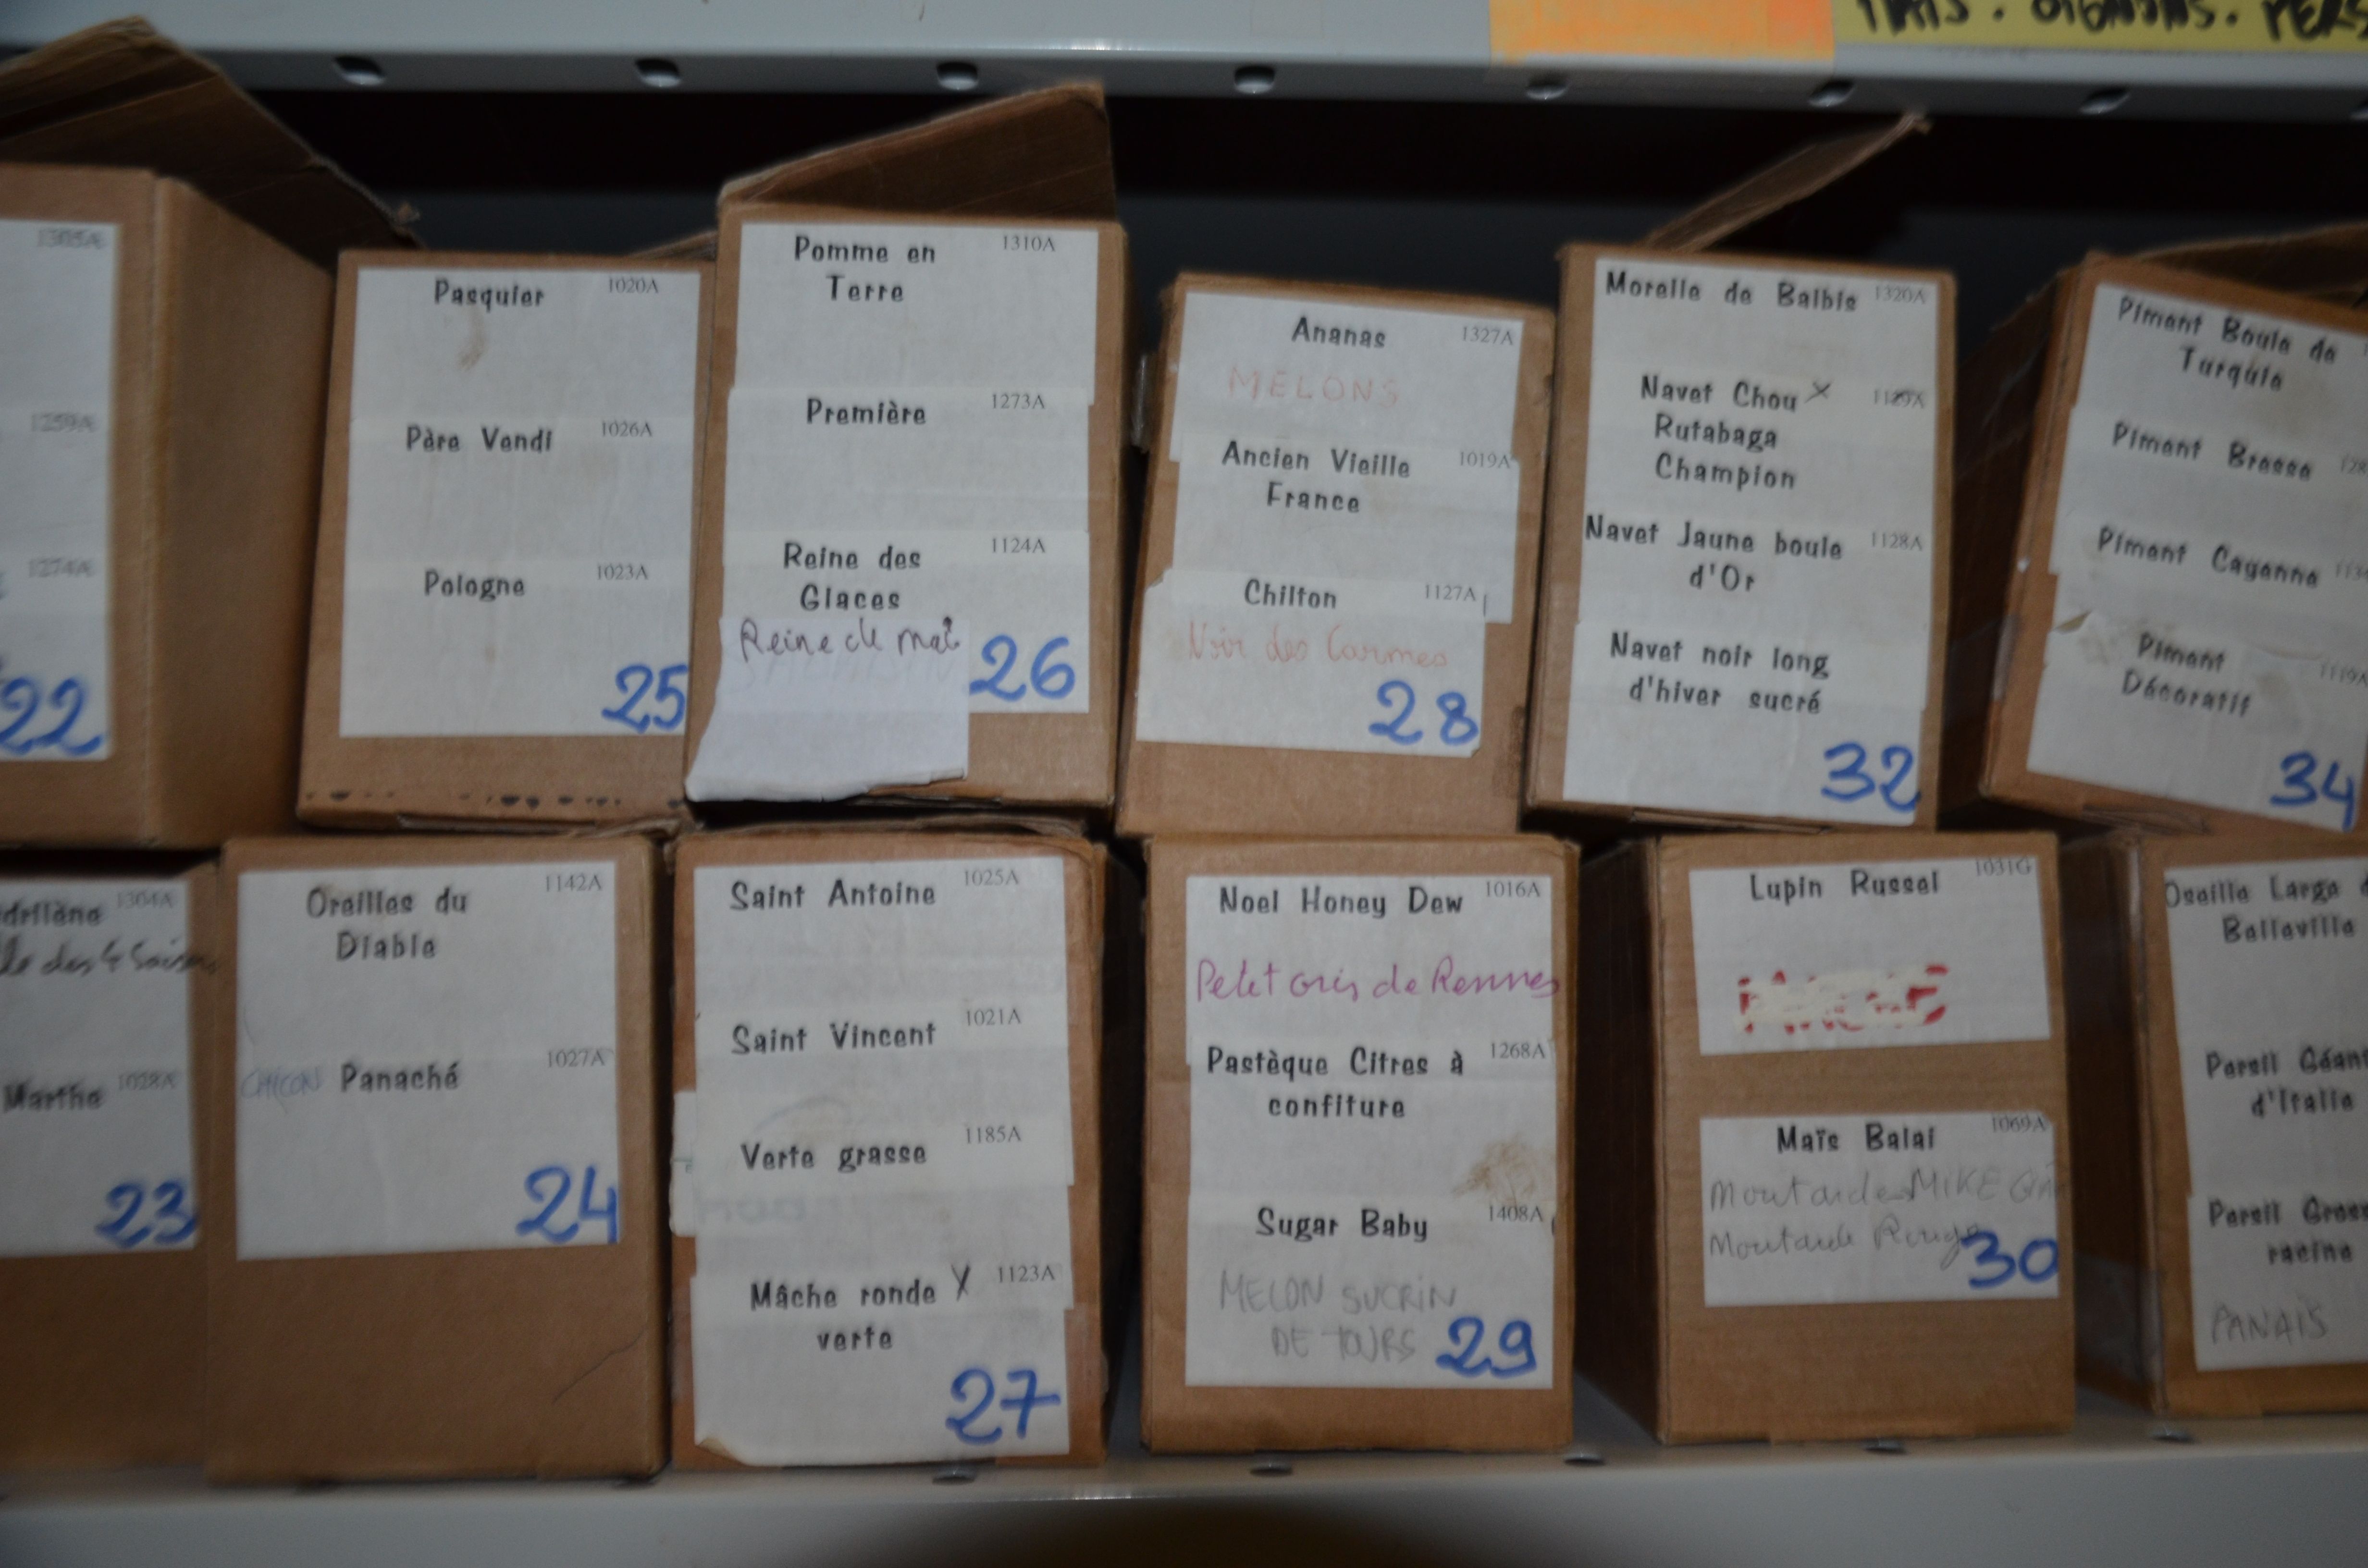 OIGNONS.
1305A
1259A
1274A
22
Pasquier 1020A
Père Vendi 1026A
Pologne 1023A
25
Pomme en 1310A
Terre
Première 1273A
Reine des 1124A
Glaces
Reine de mai
26
Ananas 1327A
MELONS
Ancien Vieille 1019A
France
Chilton 1127A
Noir des Carmes
28
Morelle de Balbis 1320A
Navet Chou X 1129A
Rutabaga
Champion
Navet Jaune boule 1128A
d'Or
Navet noir long
d'hiver sucré
32
Piment Boule de
Turquie
Piment Bresse
Piment Cayenne
Piment 1119A
Décoratif
34
1304A
des 4 Saisons
Marthe 1028A
23
Oreilles du 1142A
Diable
CHICON Panaché 1027A
24
Saint Antoine 1025A
Saint Vincent 1021A
Verte grasse 1185A
Mâche ronde X 1123A
verte
27
Noel Honey Dew 1016A
Petit Gris de Rennes
Pastèque Citres à 1268A
confiture
Sugar Baby 1408A
MELON SUCRIN
DE TOURS
29
Lupin Russel 1031G
Maïs Balai 1069A
Moutarde MIKE
Moutarde Rouge
30
Oseille Large
Belleville
Persil Géant
d'Italie
Persil
racine
PANAIS